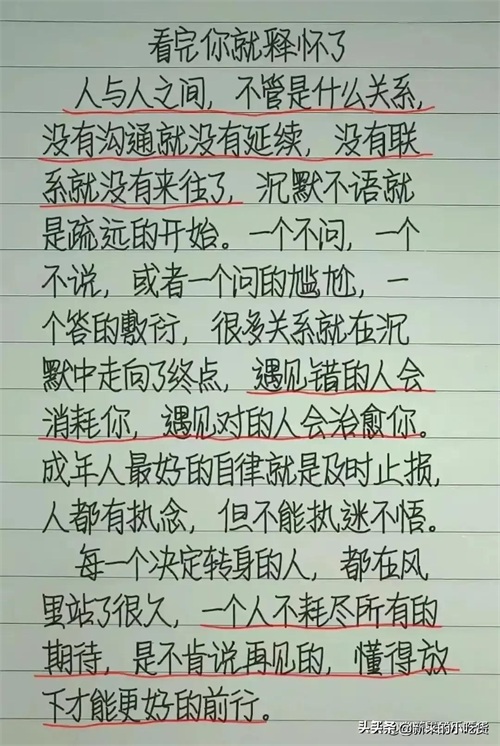 看完你就释怀了
人与人之间，不管是什么关系，
没有沟通就没有延续，没有联
系就没有来往了，沉默不语就
是疏远的开始。一个不问，一个
不说，或者一个问的尴尬，一
个答的敷衍，很多关系就在沉
默中走向了终点，遇见错的人会
消耗你，遇见对的人会治愈你。
成年人最好的自律就是及时止损，
人都有执念，但不能执迷不悟。
每一个决定转身的人，都在风
里站了很久，一个人不耗尽所有的
期待，是不肯说再见的，懂得放
下才能更好的前行。
头条 @新来的小吃货